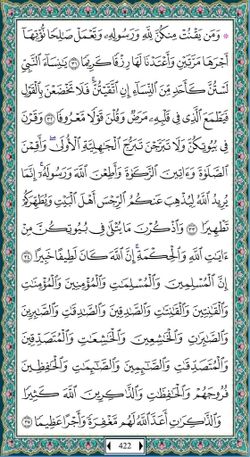 ۞ وَمَن يَقْنُتْ مِنكُنَّ لِلَّهِ وَرَسُولِهِۦ وَتَعْمَلْ صَٰلِحًا نُّؤْتِهَآ
أَجْرَهَا مَرَّتَيْنِ وَأَعْتَدْنَا لَهَا رِزْقًا كَرِيمًا ٣١ يَٰنِسَآءَ ٱلنَّبِيِّ
لَسْتُنَّ كَأَحَدٍ مِّنَ ٱلنِّسَآءِ إِنِ ٱتَّقَيْتُنَّ فَلَا تَخْضَعْنَ بِٱلْقَوْلِ
فَيَطْمَعَ ٱلَّذِى فِى قَلْبِهِۦ مَرَضٌ وَقُلْنَ قَوْلًا مَّعْرُوفًا ٣٢ وَقَرْنَ
فِى بُيُوتِكُنَّ وَلَا تَبَرَّجْنَ تَبَرُّجَ ٱلْجَٰهِلِيَّةِ ٱلْأُولَىٰ وَأَقِمْنَ
ٱلصَّلَوٰةَ وَءَاتِينَ ٱلزَّكَوٰةَ وَأَطِعْنَ ٱللَّهَ وَرَسُولَهُۥٓ إِنَّمَا
يُرِيدُ ٱللَّهُ لِيُذْهِبَ عَنكُمُ ٱلرِّجْسَ أَهْلَ ٱلْبَيْتِ وَيُطَهِّرَكُمْ
تَطْهِيرًا ٣٣ وَٱذْكُرْنَ مَا يُتْلَىٰ فِى بُيُوتِكُنَّ مِنْ
ءَايَٰتِ ٱللَّهِ وَٱلْحِكْمَةِ إِنَّ ٱللَّهَ كَانَ لَطِيفًا خَبِيرًا ٣٤
إِنَّ ٱلْمُسْلِمِينَ وَٱلْمُسْلِمَٰتِ وَٱلْمُؤْمِنِينَ وَٱلْمُؤْمِنَٰتِ
وَٱلْقَٰنِتِينَ وَٱلْقَٰنِتَٰتِ وَٱلصَّٰدِقِينَ وَٱلصَّٰدِقَٰتِ
وَٱلصَّٰبِرِينَ وَٱلصَّٰبِرَٰتِ وَٱلْخَٰشِعِينَ وَٱلْخَٰشِعَٰتِ وَٱلْمُتَصَدِّقِينَ
وَٱلْمُتَصَدِّقَٰتِ وَٱلصَّٰٓئِمِينَ وَٱلصَّٰٓئِمَٰتِ وَٱلْحَٰفِظِينَ
فُرُوجَهُمْ وَٱلْحَٰفِظَٰتِ وَٱلذَّٰكِرِينَ ٱللَّهَ كَثِيرًا
وَٱلذَّٰكِرَٰتِ أَعَدَّ ٱللَّهُ لَهُم مَّغْفِرَةً وَأَجْرًا عَظِيمًا ٣٥
422